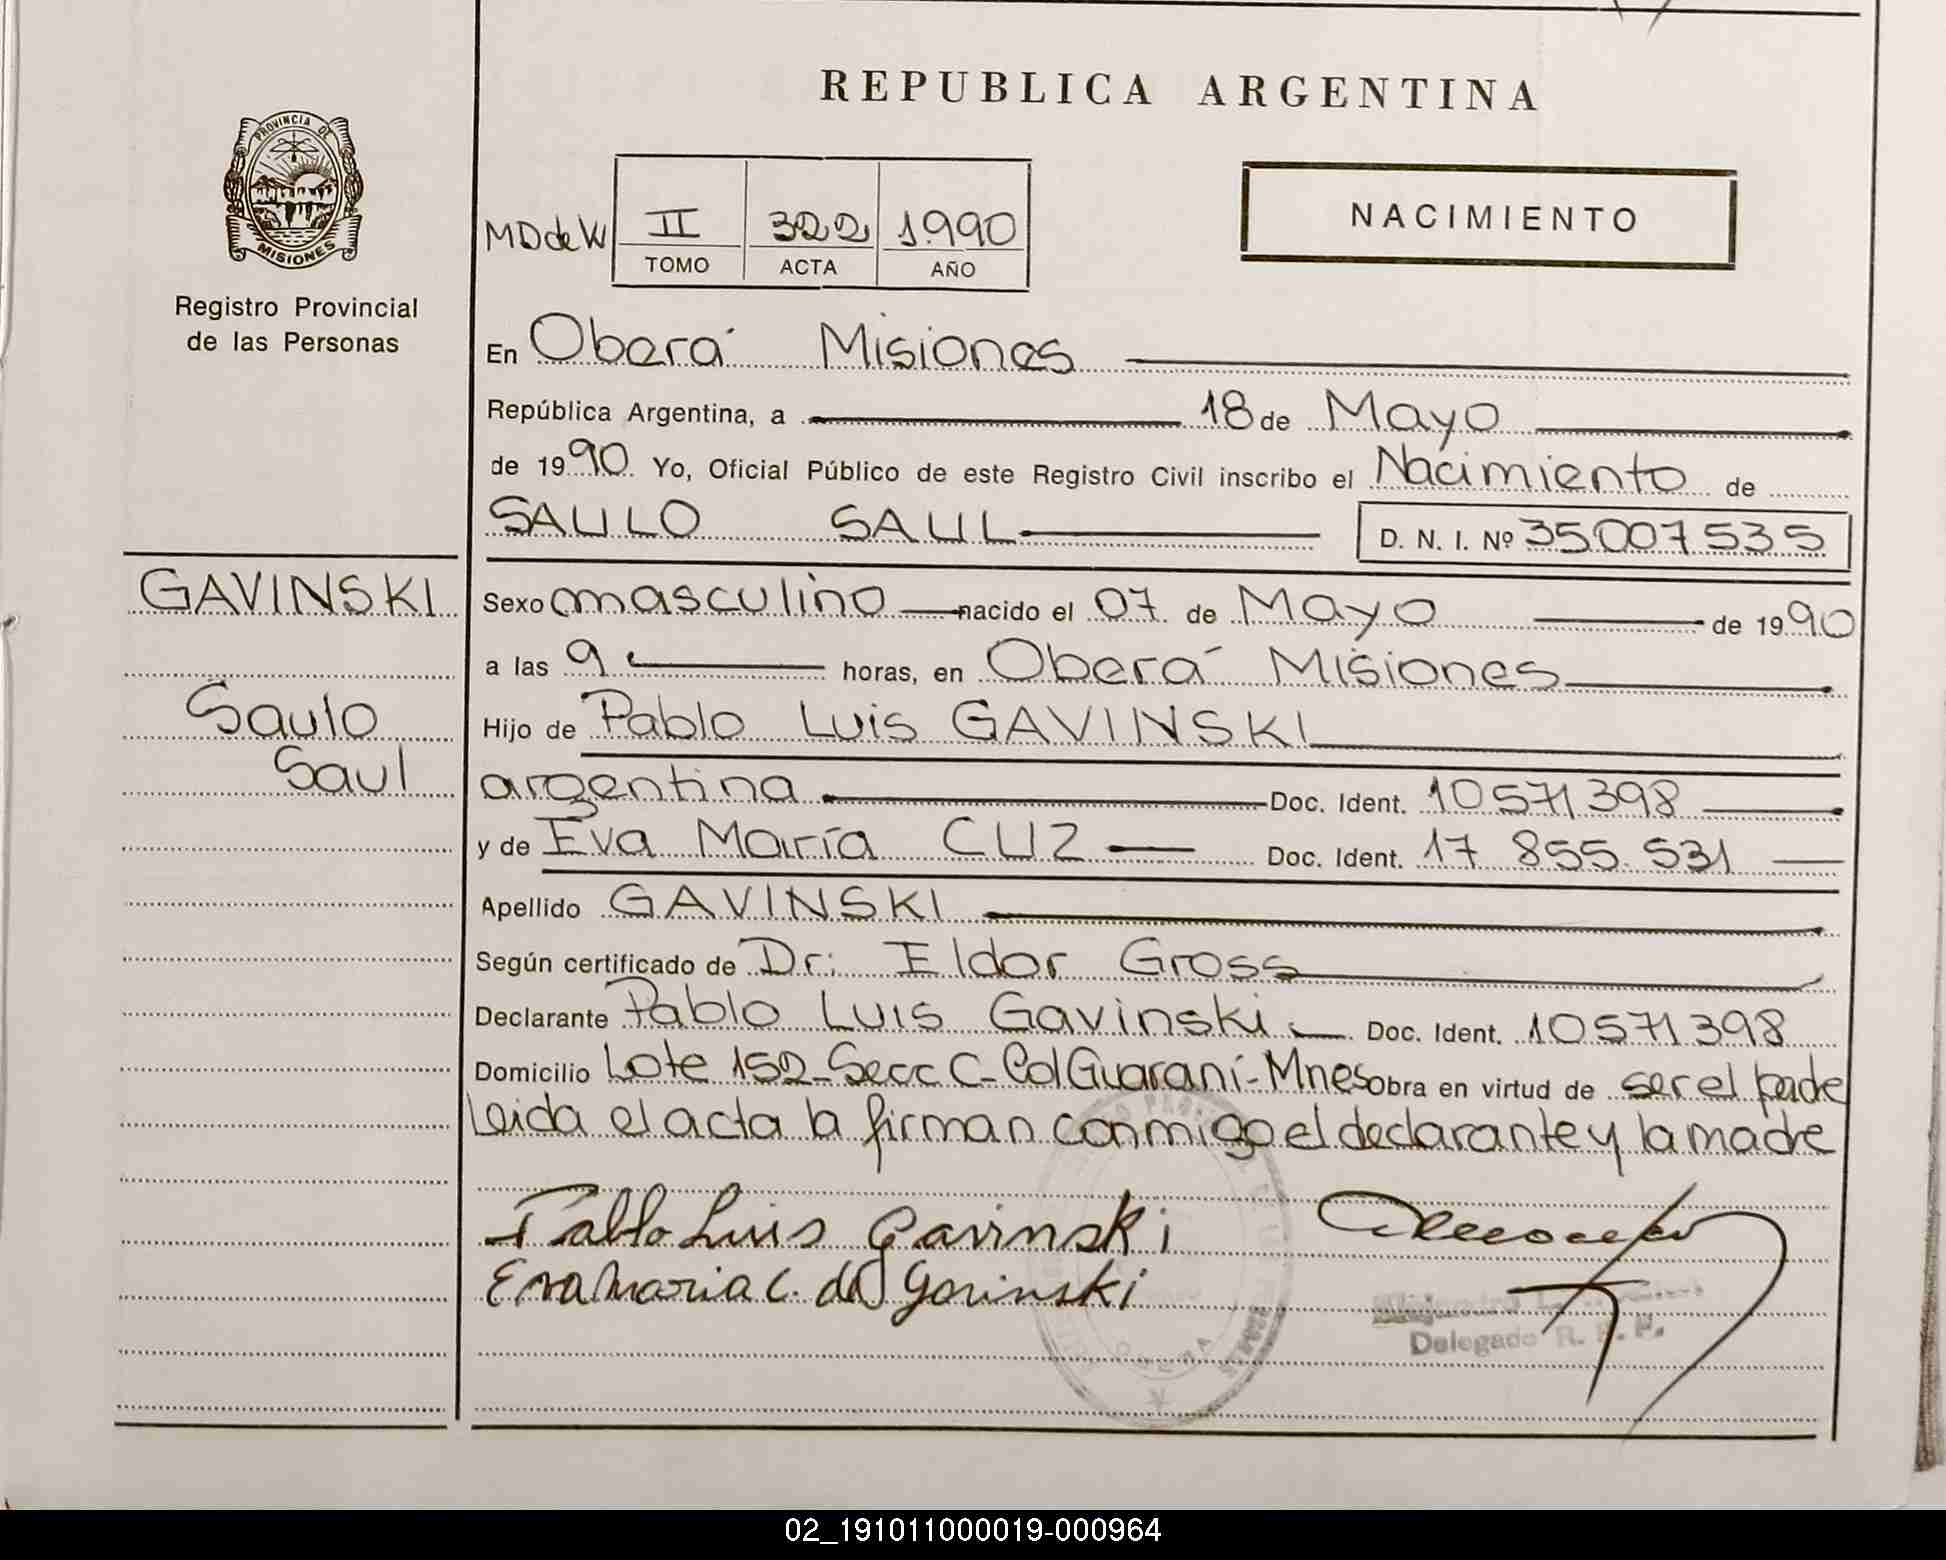 REPUBLICA ARGENTINA
PROVINCIA DE
MISIONES
Registro Provincial
de las Personas
MD de W
II 322 1.990
TOMO ACTA AÑO
NACIMIENTO
En Oberá Misiones
República Argentina, a 18 de Mayo
de 1990 Yo, Oficial Público de este Registro Civil inscribo el Nacimiento de
SAULO SAUL D. N. I. Nº 35007535
GAVINSKI
Saulo
Saul
Sexo masculino nacido el 07 de Mayo de 1990
a las 9 horas, en Oberá Misiones
Hijo de Pablo Luis GAVINSKI
argentina Doc. Ident. 10571398
y de Eva María CUZ Doc. Ident. 17 855.531
Apellido GAVINSKI
Según certificado de Dr: Eldor Gross
Declarante Pablo Luis Gavinski Doc. Ident. 10571398
Domicilio Lote 152-Secc C-Col Guaraní-Mnes obra en virtud de ser el padre
Leida el acta la firman conmigo el declarante y la madre
Pablo Luis Gavinski
Eva Maria C. de Gavinski
Delegado R. P. P.
02_191011000019-000964